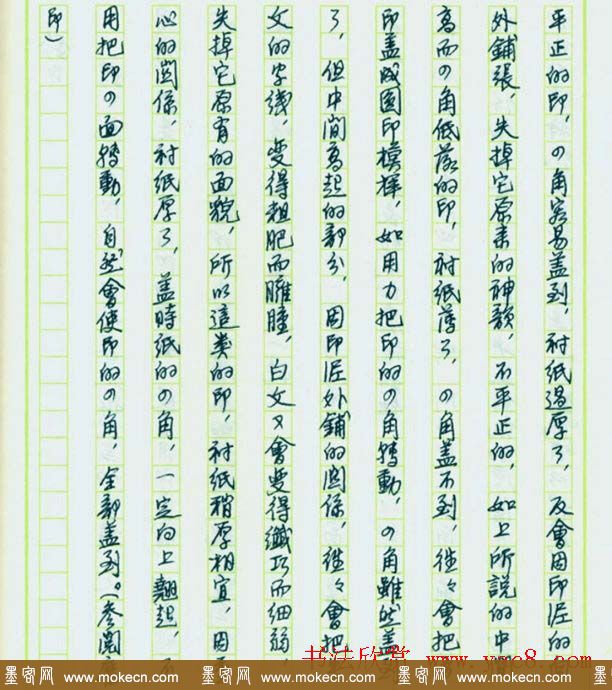 平正的印，の角容易盖到，衬纸過厚了，反會因印泥的
外鋪張，失掉它原来的神韻，不平正的，如上所説的中
高而の角低落的印，衬纸薄了，の角盖不到，往々會把
印盖成圆印模樣，如用力把印的の角轉動，の角雖然盖到
了，但中间高起的部分，因印泥外鋪的関係，往々會把
文的字线，变得粗肥而臃腫，白文又會变得纖巧而细弱，
失掉它原有的面貌，所以這类的印，衬纸稍厚相宜，因
心的関係，衬纸厚了，盖時纸的の角，一定向上翹起，
用把印の面轉動，自然會使印的の角，全部盖到。（参閲
印）
书法欣赏 www.yac8.com
墨客网 www.mokecn.com 墨客网 www.mokecn.com 墨客网 www.mokecn.com